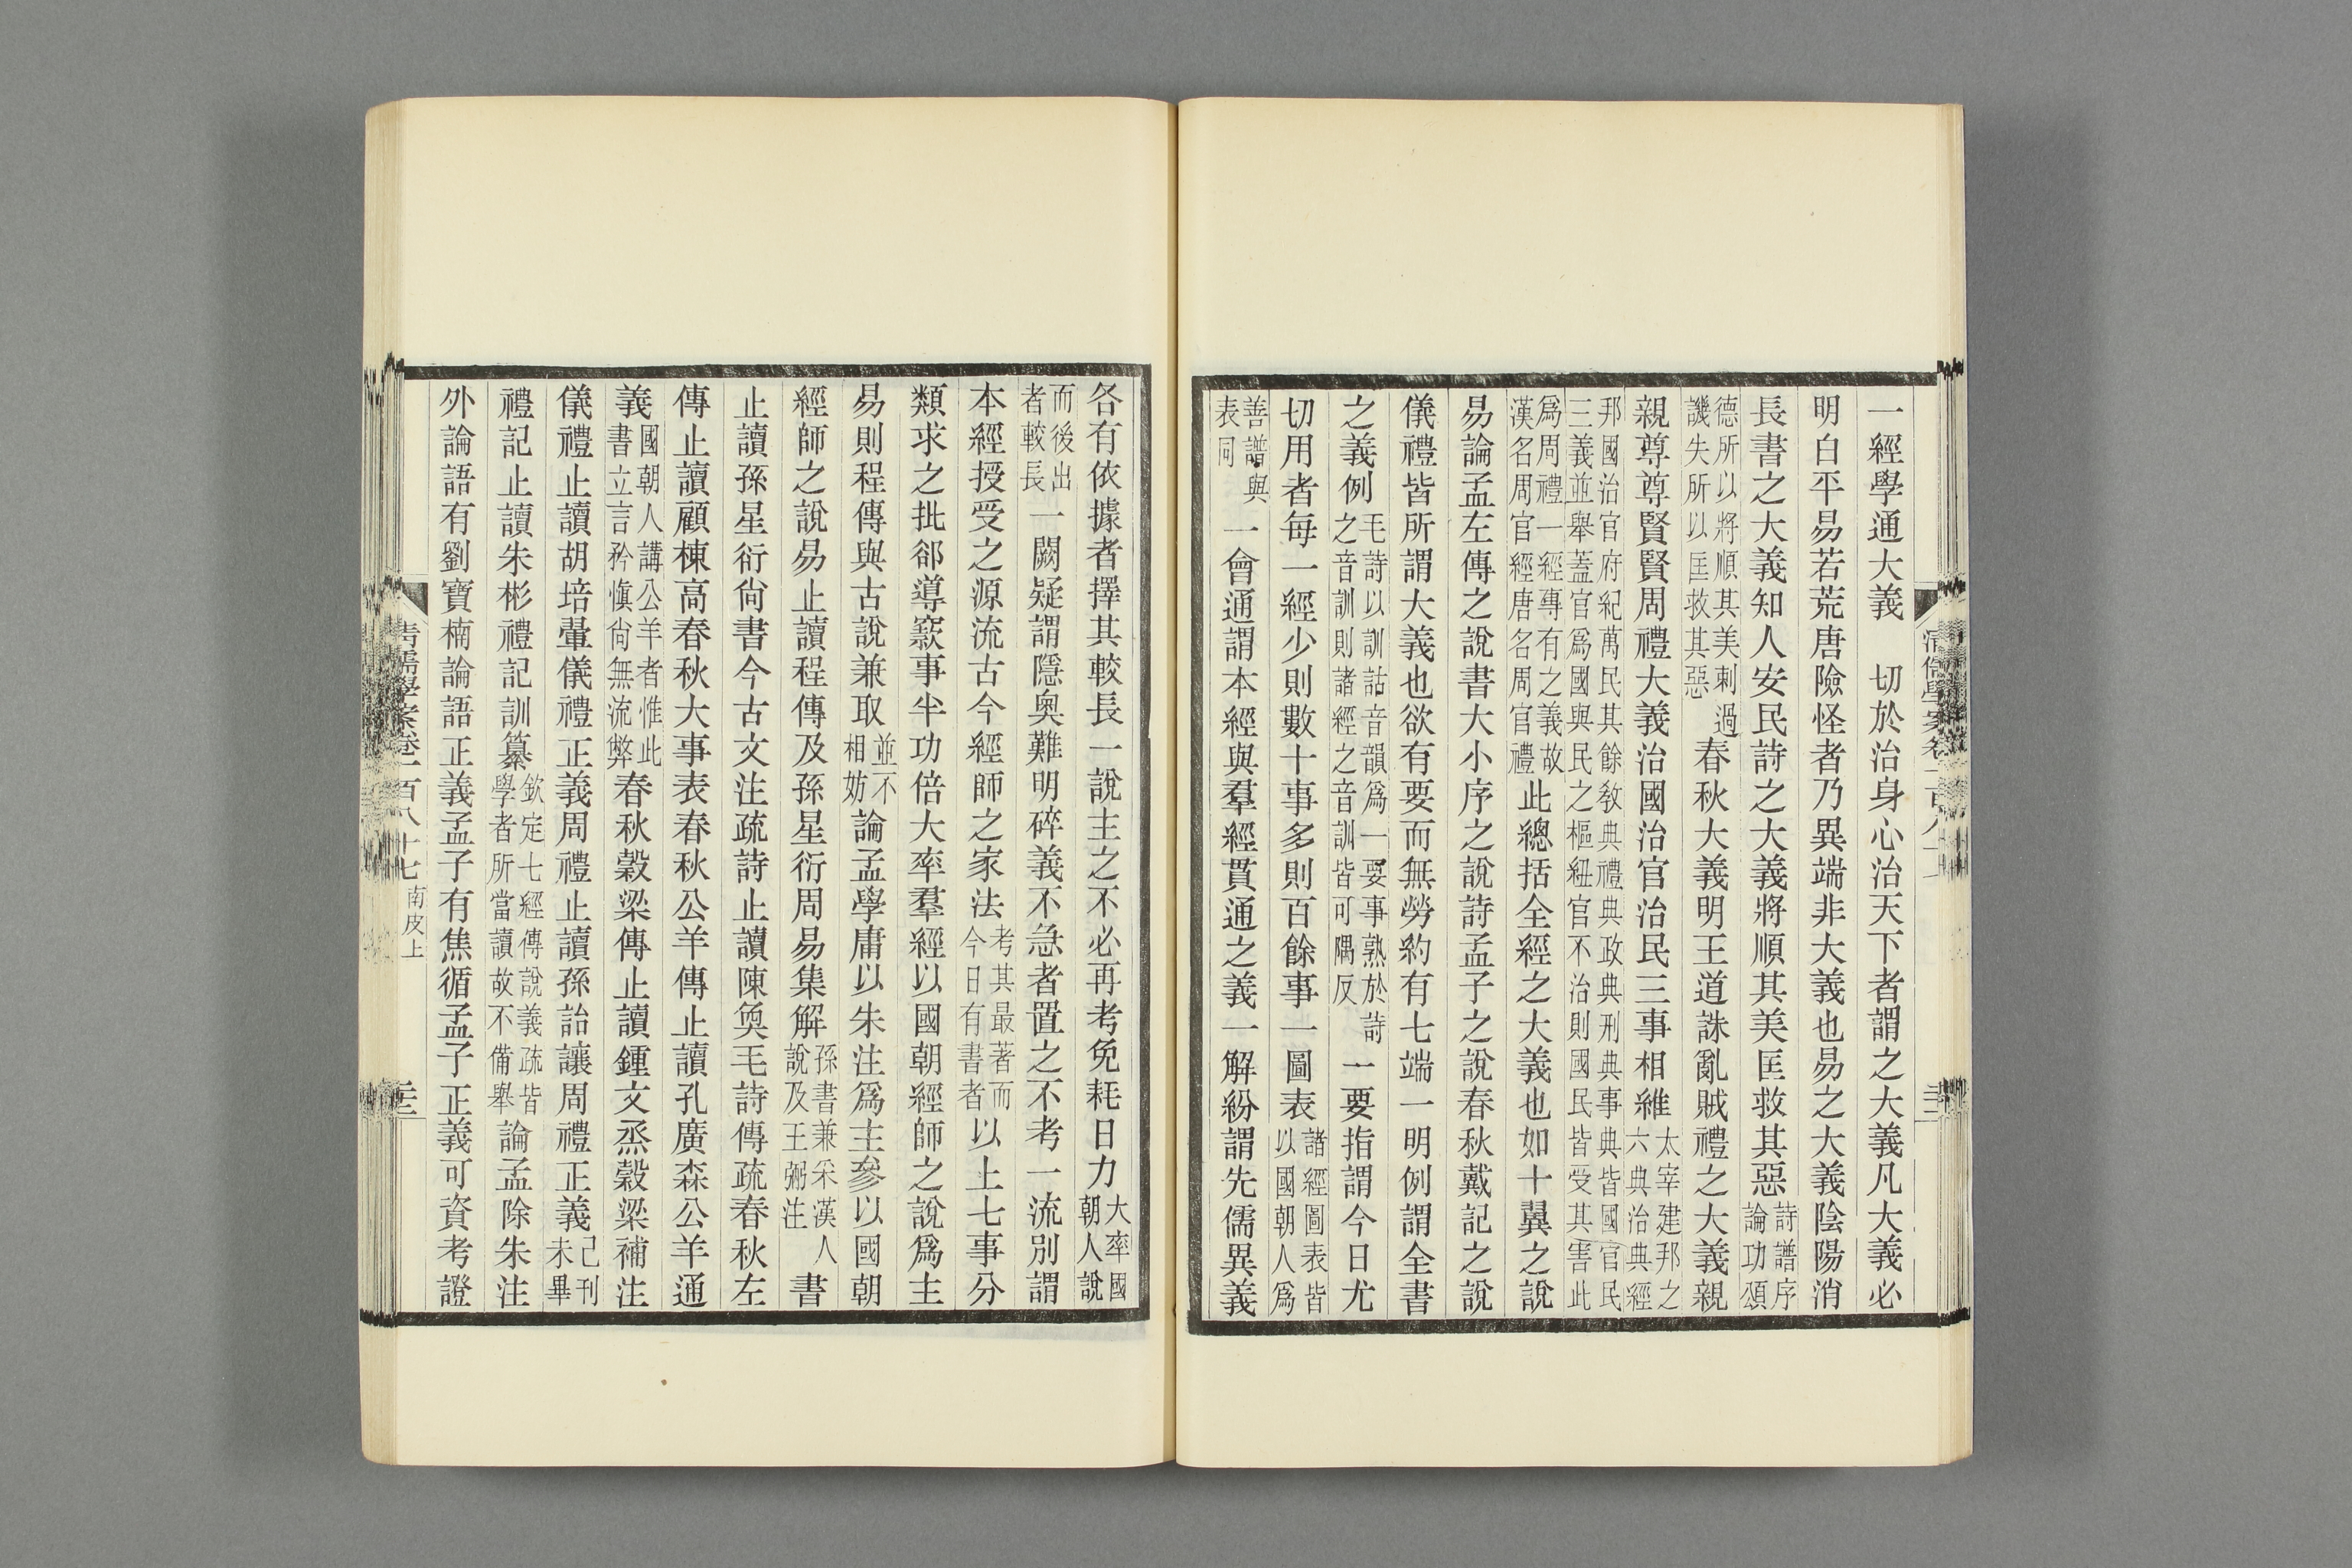 一經學通大義　切於治身心治天下者謂之大義凡大義必
明白平易若荒唐險怪者乃異端非大義也易之大義陰陽消
長書之大義知人安民詩之大義將順其美匡救其惡詩譜序論功頌
德所以將順其美刺過譏失所以匡救其惡春秋大義明王道誅亂賊禮之大義親
親尊尊賢賢周禮大義治國治官治民三事相維太宰建邦之六典治典經
邦國治官府紀萬民其餘敎典禮典政典刑典事典皆國官民三義並舉蓋官爲國與民之樞紐官不治則國民皆受其害此
爲周禮一經專有之義故漢名周官經唐名周官禮此總括全經之大義也如十翼之說
易論孟左傳之說書大小序之說詩孟子之說春秋戴記之說
儀禮皆所謂大義也欲有要而無勞約有七端一明例謂全書
之義例毛詩以訓詁音韻爲一要事熟於詩之音訓則諸經之音訓皆可隅反一要指謂今日尤
切用者每一經少則數十事多則百餘事一圖表諸經圖表皆以國朝人爲
善譜與表同一會通謂本經與羣經貫通之義一解紛謂先儒異義
各有依據者擇其較長一說主之不必再考免耗日力大率國朝人說
而後出者較長一闕疑謂隱奧難明碎義不急者置之不考一流別謂
本經授受之源流古今經師之家法考其最著而今日有書者以上七事分
類求之批郤導窾事半功倍大率羣經以國朝經師之說爲主
易則程傳與古說兼取並不相妨論孟學庸以朱注爲主參以國朝
經師之說易止讀程傳及孫星衍周易集解孫書兼采漢人說及王弼注書
止讀孫星衍尙書今古文注疏詩止讀陳奐毛詩傳疏春秋左
傳止讀顧棟高春秋大事表春秋公羊傳止讀孔廣森公羊通
義國朝人講公羊者惟此書立言矜愼尙無流弊春秋穀梁傳止讀鍾文烝穀梁補注
儀禮止讀胡培翬儀禮正義周禮止讀孫詒讓周禮正義已刊未畢
禮記止讀朱彬禮記訓纂欽定七經傳說義疏皆學者所當讀故不備舉論孟除朱注
外論語有劉寶楠論語正義孟子有焦循孟子正義可資考證
清儒學案卷一百八十七南皮上